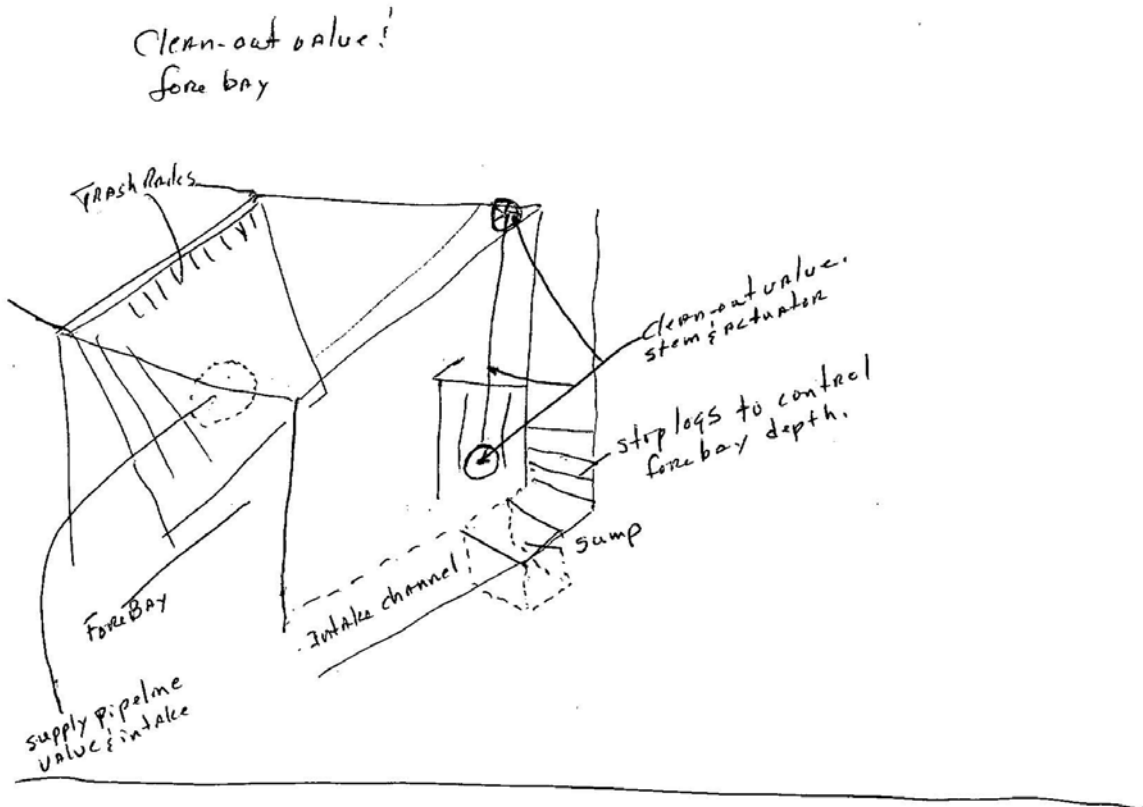 Clean-out value!
fore bay
Trash Racks
clean-out value.
stem & actuator
stop logs to control
fore bay depth.
sump
Intake channel
ForeBAY
supply pipeline
value & intake